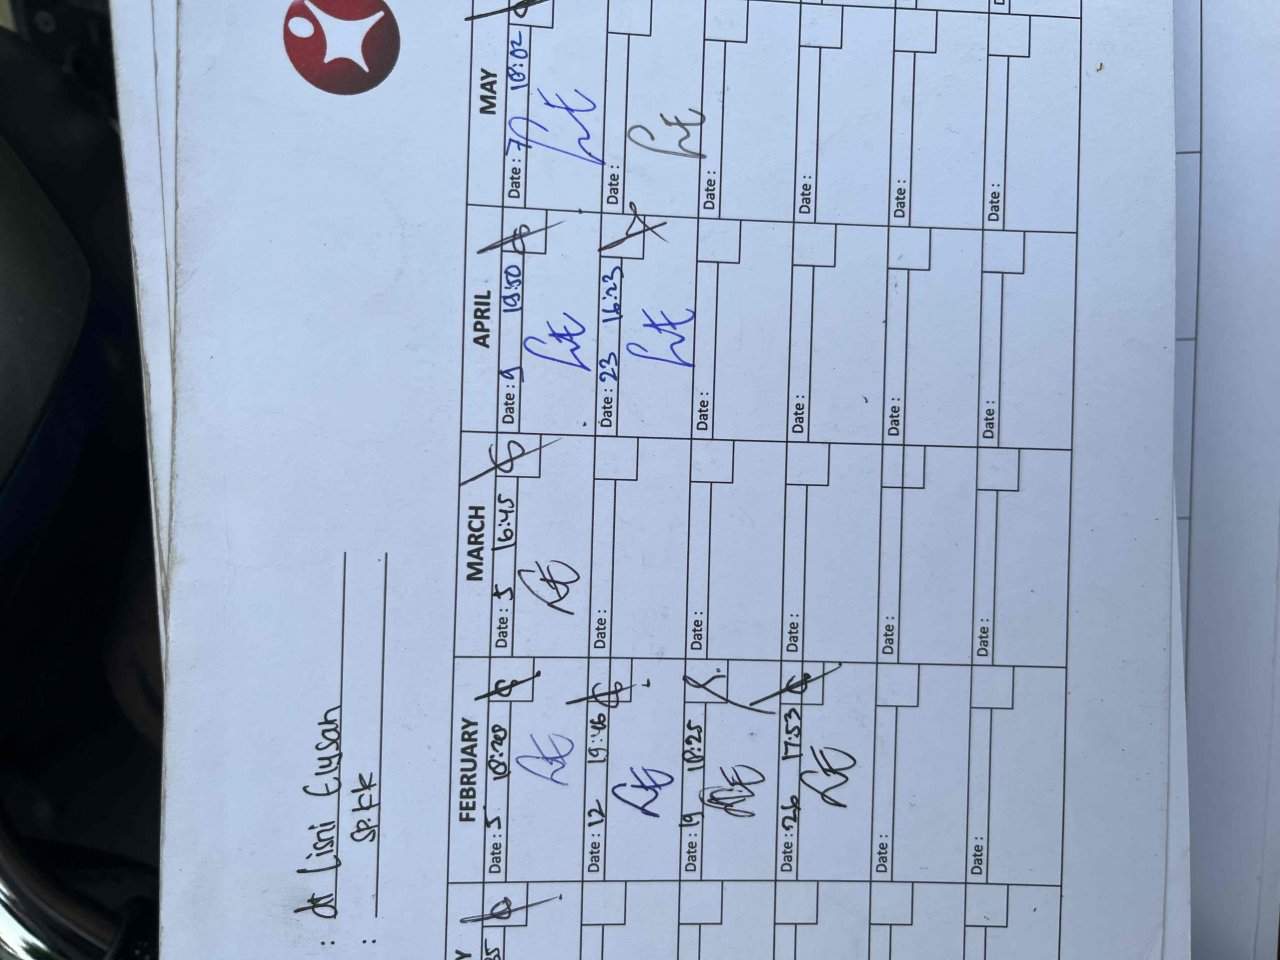 : dr Lisni Elysah
: Sp.KK
Y FEBRUARY MARCH APRIL MAY
35 Date : 5 18:20 Date : 5 16:45 Date : 9 19:50 Date : 7 18:02
Date : 12 19:46 Date : Date : 23 16:23 Date :
Date : 19 18:25 Date : Date : Date :
Date : 26 17:53 Date : Date : Date :
Date : Date : Date : Date :
Date : Date : Date : Date :